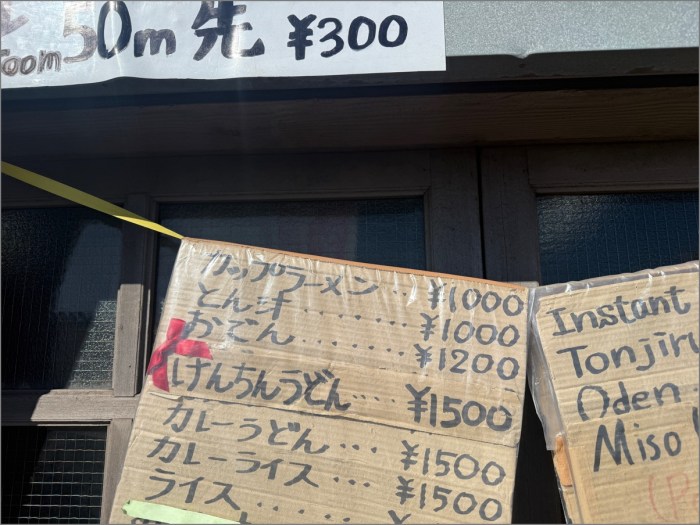 oom 50m 先 ¥300
カップラーメン・・・¥1000
とん汁・・・・・・・・¥1000
おでん・・・・・・・・¥1200
けんちんうどん・・・・¥1500
カレーうどん・・・¥1500
カレーライス・・・¥1500
ライス・・・・・・
Instant
Tonjiru
Oden
Miso